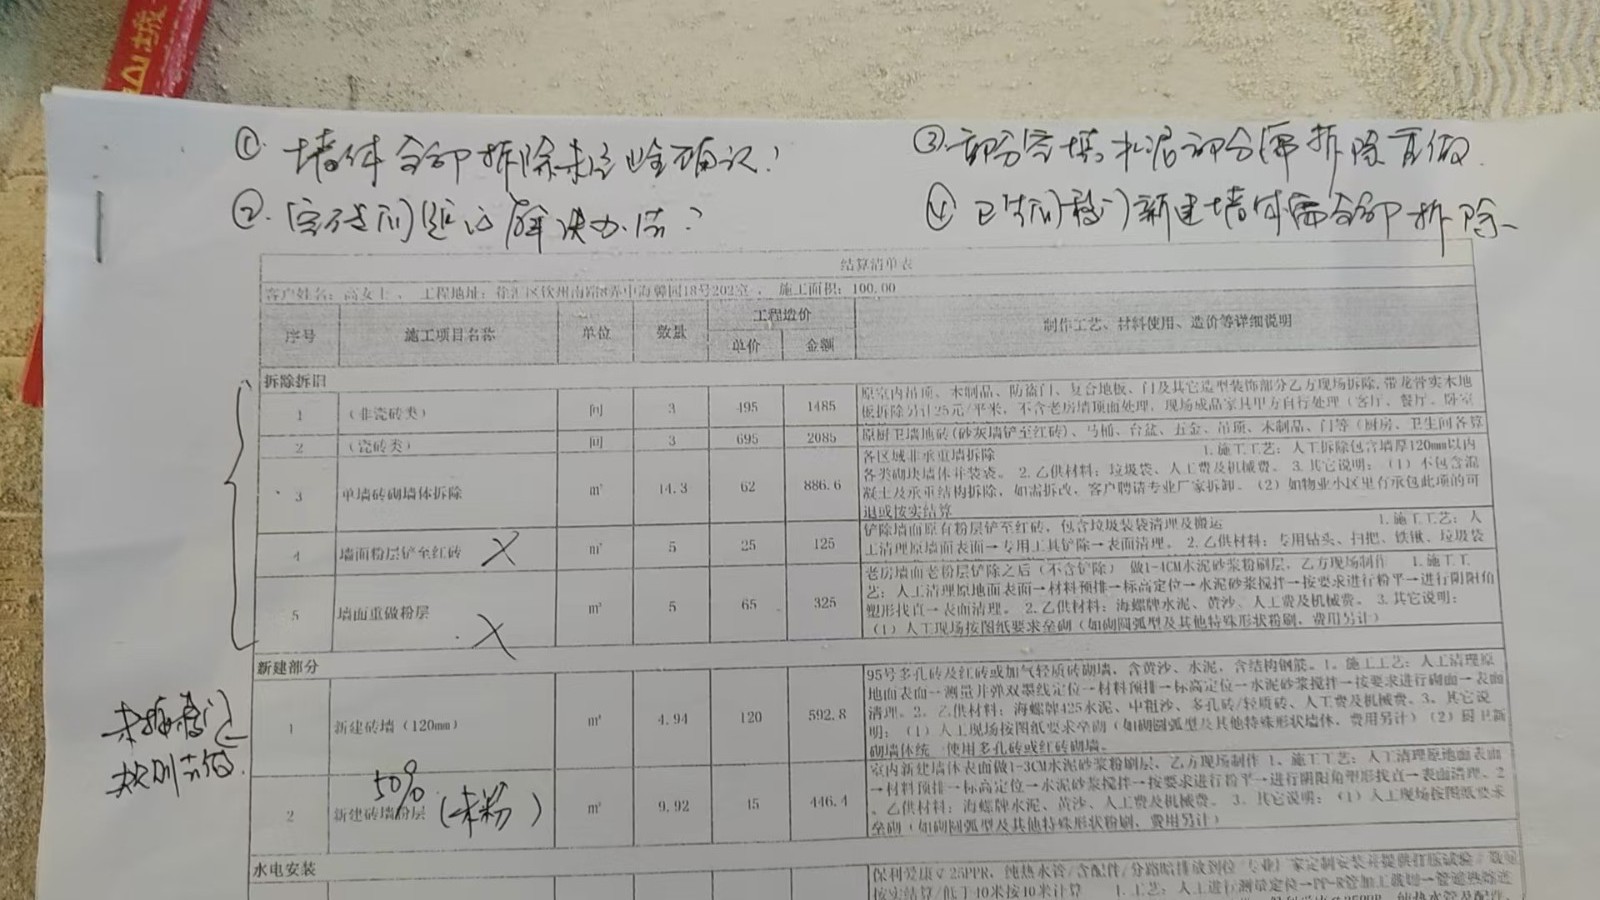 山城
① 墙体全部拆除未经业主确认？
③ 部分空墙水泥部分需拆除重做
② 解决办法？
④ 卫生间移门新建墙体需全部拆除
结算清单表
客户姓名：高女士 、 工程地址：徐汇区钦州南路8弄中海馨园18号202室 、 施工面积：100.00
序号 施工项目名称 单位 数量 工程造价 制作工艺、材料使用、造价等详细说明
单价 金额
拆除拆旧
1 （非瓷砖类） 间 3 495 1485 原室内吊顶、木制品、防盗门、复合地板、门及其它造型装饰部分乙方现场拆除,带龙骨实木地
板拆除另计25元/平米，不含老房墙顶面处理，现场成品家具甲方自行处理（客厅、餐厅、卧室
2 （瓷砖类） 间 3 695 2085 原厨卫墙地砖(砂灰墙铲至红砖)、马桶、台盆、五金、吊顶、木制品、门等（厨房、卫生间各算
3 单墙砖砌墙体拆除 ㎡ 14.3 62 886.6 各区域非承重墙拆除 1.施工工艺：人工拆除包含墙厚120mm以内
各类砌块墙体并装袋。 2.乙供材料：垃圾袋、人工费及机械费。 3.其它说明：（1）不包含混
凝土及承重结构拆除，如需拆改，客户聘请专业厂家拆卸。（2）如物业小区里有承包此项的可
退或按实结算
4 墙面粉层铲至红砖 X ㎡ 5 25 125 铲除墙面原有粉层铲至红砖，包含垃圾装袋清理及搬运 1.施工工艺：人
工清理原墙面表面→专用工具铲除→表面清理。 2.乙供材料：专用钻头、扫把、铁锹、垃圾袋
5 墙面重做粉层 X ㎡ 5 65 325 老房墙面老粉层铲除之后（不含铲除） 做1-4CM水泥砂浆粉刷层，乙方现场制作 1.施工工
艺：人工清理原地面表面→材料预排→标高定位→水泥砂浆搅拌→按要求进行粉平→进行阴阳角
塑形找直→表面清理。 2.乙供材料：海螺牌水泥、黄沙、人工费及机械费。 3.其它说明：
（1）人工现场按图纸要求垒砌（如砌圆弧型及其他特殊形状粉刷，费用另计）
新建部分
1 新建砖墙（120mm） ㎡ 4.94 120 592.8 95号多孔砖及红砖或加气轻质砖砌墙，含黄沙、水泥，含结构钢筋。1、施工工艺：人工清理原
地面表面→测量并弹双墨线定位→材料预排→标高定位→水泥砂浆搅拌→按要求进行砌面→表面
清理。2、乙供材料：海螺牌425水泥、中粗沙、多孔砖/轻质砖、人工费及机械费。3、其它说
明：（1）人工现场按图纸要求垒砌（如砌圆弧型及其他特殊形状墙体，费用另计）（2）厨卫新
砌墙体统一使用多孔砖或红砖砌墙。
未按移门
规则
2 新建砖墙粉层 50% (未粉) ㎡ 9.92 45 446.4 室内新建墙体表面做1-3CM水泥砂浆粉刷层，乙方现场制作 1、施工工艺：人工清理原地面表面
→材料预排→标高定位→水泥砂浆搅拌→按要求进行粉平→进行阴阳角塑形找直→表面清理。2
、乙供材料：海螺牌水泥、黄沙、人工费及机械费。 3、其它说明：（1）人工现场按图纸要求
垒砌（如砌圆弧型及其他特殊形状粉刷，费用另计）
水电安装
保利爱康¢25PPR，纯热水管/含配件/分路暗排放到位 专业厂家定制安装并提供打压试验
按实结算/低于10米按10米计算 1.工艺：人工进行测量定位→PP-R管加工裁切→管道热熔连